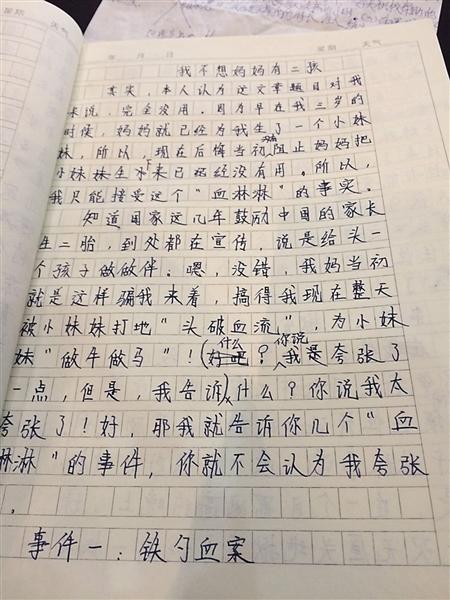 年 月 日 星期 天气
我不想妈妈有二孩
其实，本人认为这文章题目对我
来说，完全没用。因为早在我三岁的
时候，妈妈就已经为我生了一个小妹
妹，所以，现在后悔当初阻止妈妈把
小妹妹生下来已经没有用。所以，
我只能接受这个“血淋淋”的事实。
知道国家这几年鼓励中国的家长
生二胎，到处都在宣传，说是给头一
个孩子做做伴。嗯，没错，我妈当初
就是这样骗我来着，搞得我现在整天
被小妹妹打地“头破血流”，为小妹
妹“做牛做马”！什么？你说我是夸张了
一点，但是，我告诉什么？你说我太
夸张了！好，那我就告诉你几个“血
淋淋”的事件，你就不会认为我夸张
事件一：铁勺血案